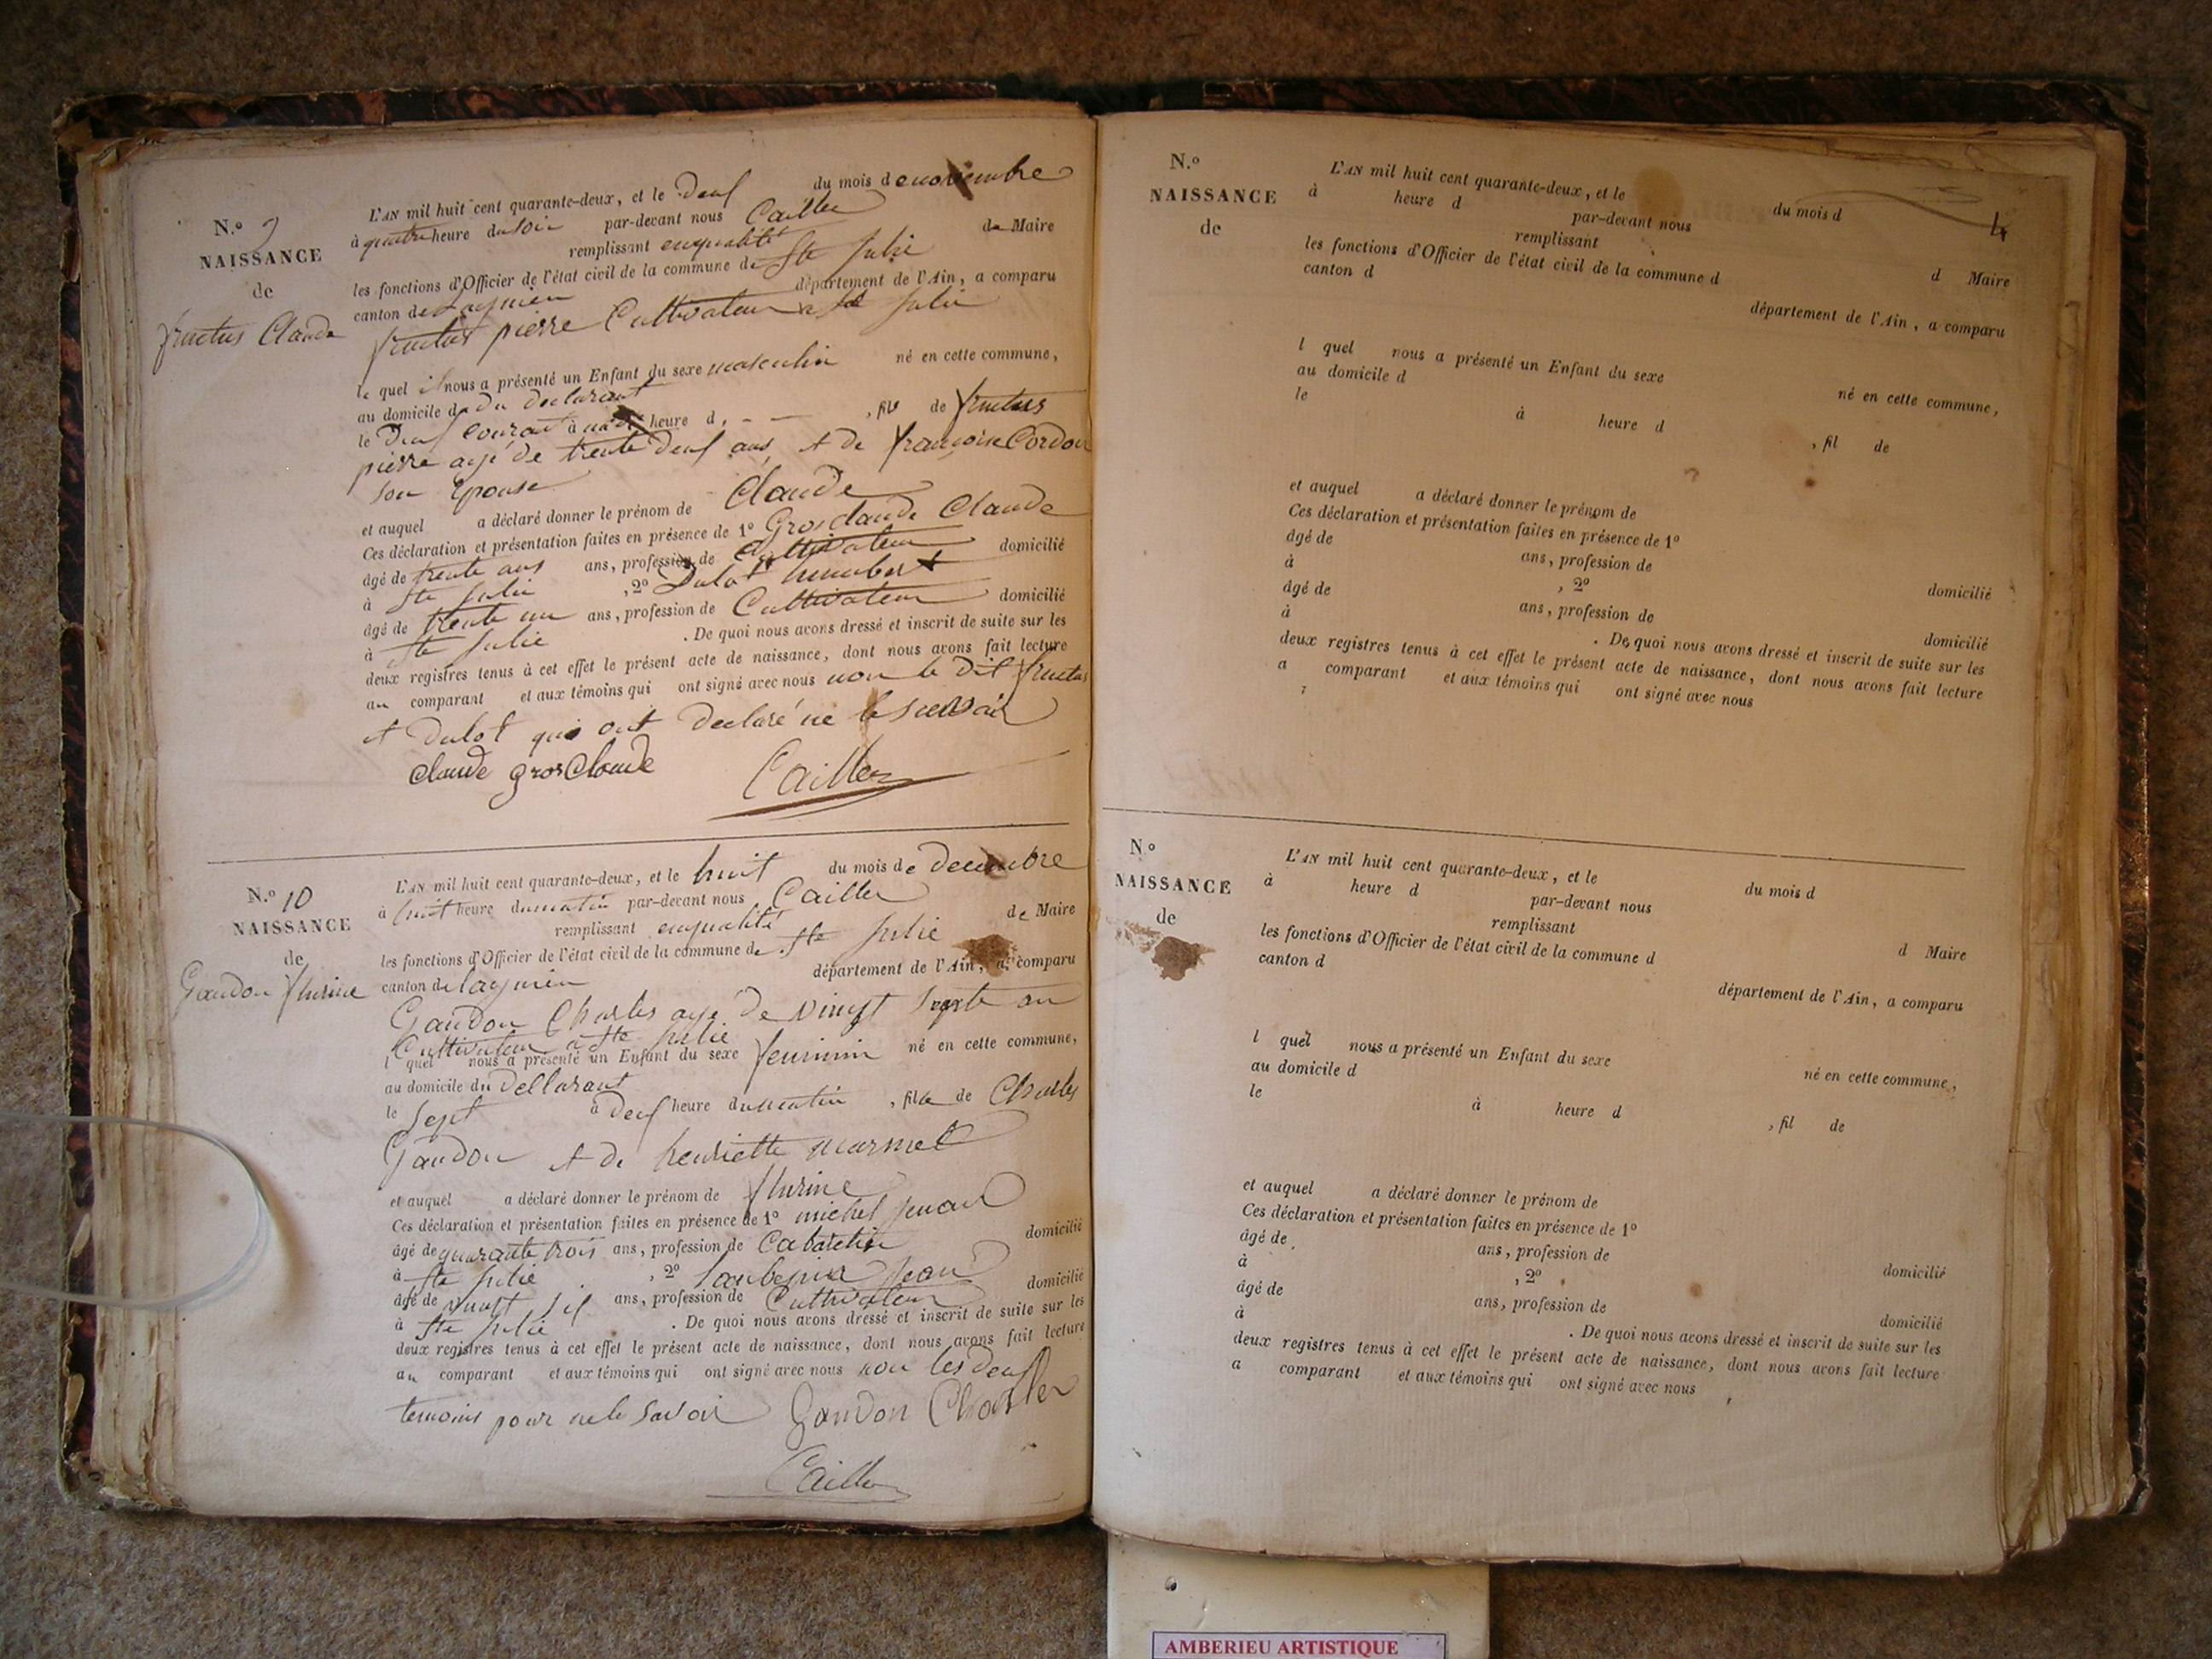 N.º 9
NAISSANCE
de
fructus Claude
L'AN mil huit cent quarante-deux, et le Deux du mois de novembre
à quatre heure du Soir par-devant nous Cailler
remplissant en qualité de Maire
les fonctions d'Officier de l'état civil de la commune de Ste Julie
canton de Lagnieu département de l'Ain, a comparu
fructus pierre Cultivateur a Ste Julie
le quel il nous a présenté un Enfant du sexe masculin né en cette commune,
au domicile de du declarant
le Deux courant à heure d , fils de fructus
pierre agé de trente Deux ans, et de françoise Cordon
son Epouse
et auquel a déclaré donner le prénom de Claude
Ces déclaration et présentation faites en présence de 1º Grosclaude Claude
âgé de trente ans ans, profession de Cultivateur domicilié
à Ste Julie , 2º Dulot humbert
âgé de trente un ans, profession de Cultivateur domicilié
à Ste Julie . De quoi nous avons dressé et inscrit de suite sur les
deux registres tenus à cet effet le présent acte de naissance, dont nous avons fait lecture
au comparant et aux témoins qui ont signé avec nous non le dit fructus
et Dulot qui ont Declaré ne le
Claude grosClaude Cailler
N.º 10
NAISSANCE
de
Gaudon
L'AN mil huit cent quarante-deux, et le huit du mois de decembre
à huit heure du matin par-devant nous Cailler
remplissant en qualité de Maire
les fonctions d'Officier de l'état civil de la commune de Ste Julie
canton de lagnieu département de l'Ain, a comparu
Gaudon Charles agé de vingt Sept an
Cultivateur a Ste Julie
l quel nous a présenté un Enfant du sexe feminin né en cette commune,
au domicile du Dellarant
le Sept à Deux heure du matin , fille de Charles
Gaudon et de henriette marmet
et auquel a déclaré donner le prénom de
Ces déclaration et présentation faites en présence de 1º michel
âgé de quarante trois ans, profession de Cabaretier domicilié
à Ste Julie , 2º Jean
âgé de vingt Six ans, profession de Cultivateur domicilié
à Ste Julie . De quoi nous avons dressé et inscrit de suite sur les
deux registres tenus à cet effet le présent acte de naissance, dont nous avons fait lecture
au comparant et aux témoins qui ont signé avec nous non les Deux
temoins pour ne le Savoir Gaudon Charles
Cailler
4
N.º
NAISSANCE
de
L'AN mil huit cent quarante-deux, et le du mois d
à heure d par-devant nous
remplissant d Maire
les fonctions d'Officier de l'état civil de la commune d
canton d département de l'Ain, a comparu
l quel nous a présenté un Enfant du sexe né en cette commune,
au domicile d
le à heure d , fil de
et auquel a déclaré donner le prénom de
Ces déclaration et présentation faites en présence de 1º
âgé de ans, profession de domicilié
à , 2º
âgé de ans, profession de domicilié
à . De quoi nous avons dressé et inscrit de suite sur les
deux registres tenus à cet effet le présent acte de naissance, dont nous avons fait lecture
a comparant et aux témoins qui ont signé avec nous
N.º
NAISSANCE
de
L'AN mil huit cent quarante-deux, et le du mois d
à heure d par-devant nous
remplissant d Maire
les fonctions d'Officier de l'état civil de la commune d
canton d département de l'Ain, a comparu
l quel nous a présenté un Enfant du sexe né en cette commune,
au domicile d
le à heure d , fil de
et auquel a déclaré donner le prénom de
Ces déclaration et présentation faites en présence de 1º
âgé de ans, profession de domicilié
à , 2º
âgé de ans, profession de domicilié
à . De quoi nous avons dressé et inscrit de suite sur les
deux registres tenus à cet effet le présent acte de naissance, dont nous avons fait lecture
a comparant et aux témoins qui ont signé avec nous
AMBERIEU ARTISTIQUE